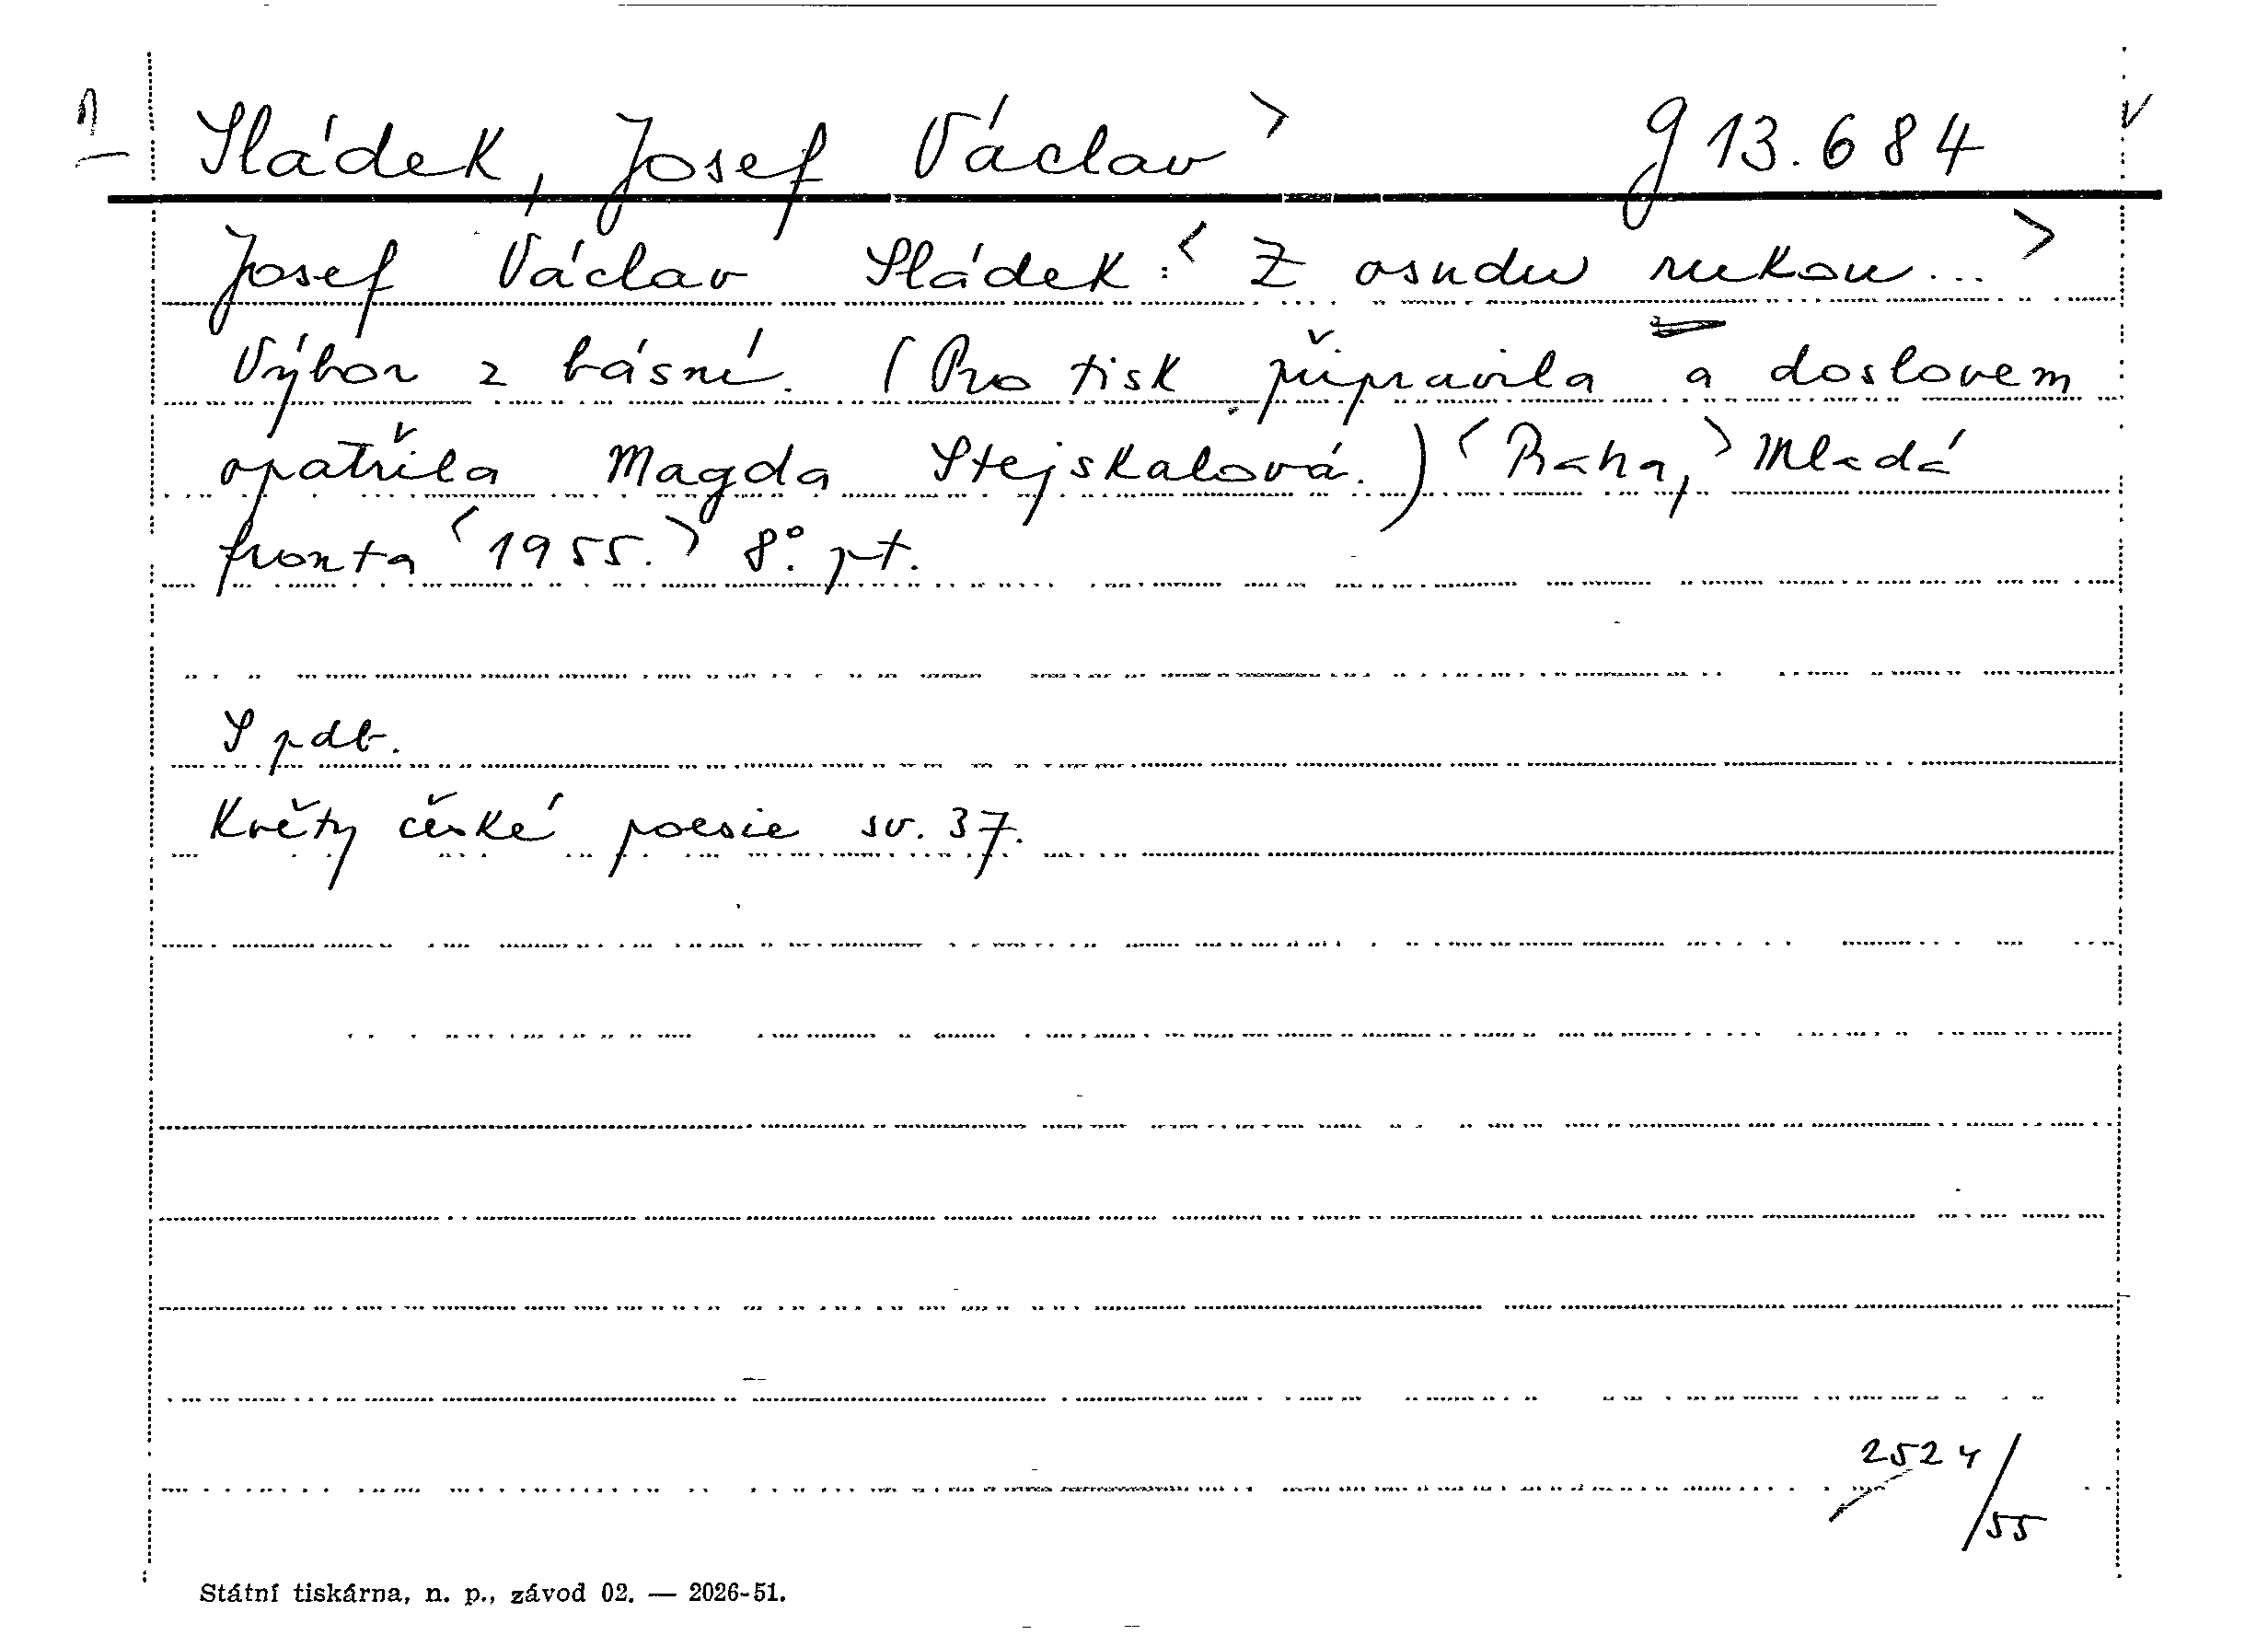 Sládek, Josef Václav > g 13.684
Josef Václav Sládek: < Z osudu rukou... >
Výbor z básní. (Pro tisk připravila a doslovem
opatřila Magda Stejskalová.) < Praha, > Mladá
fronta < 1955. > 8°. pt.
S pdb.
Květy české poesie sv. 37.
2524/55
Státní tiskárna, n. p., závod 02. — 2026-51.